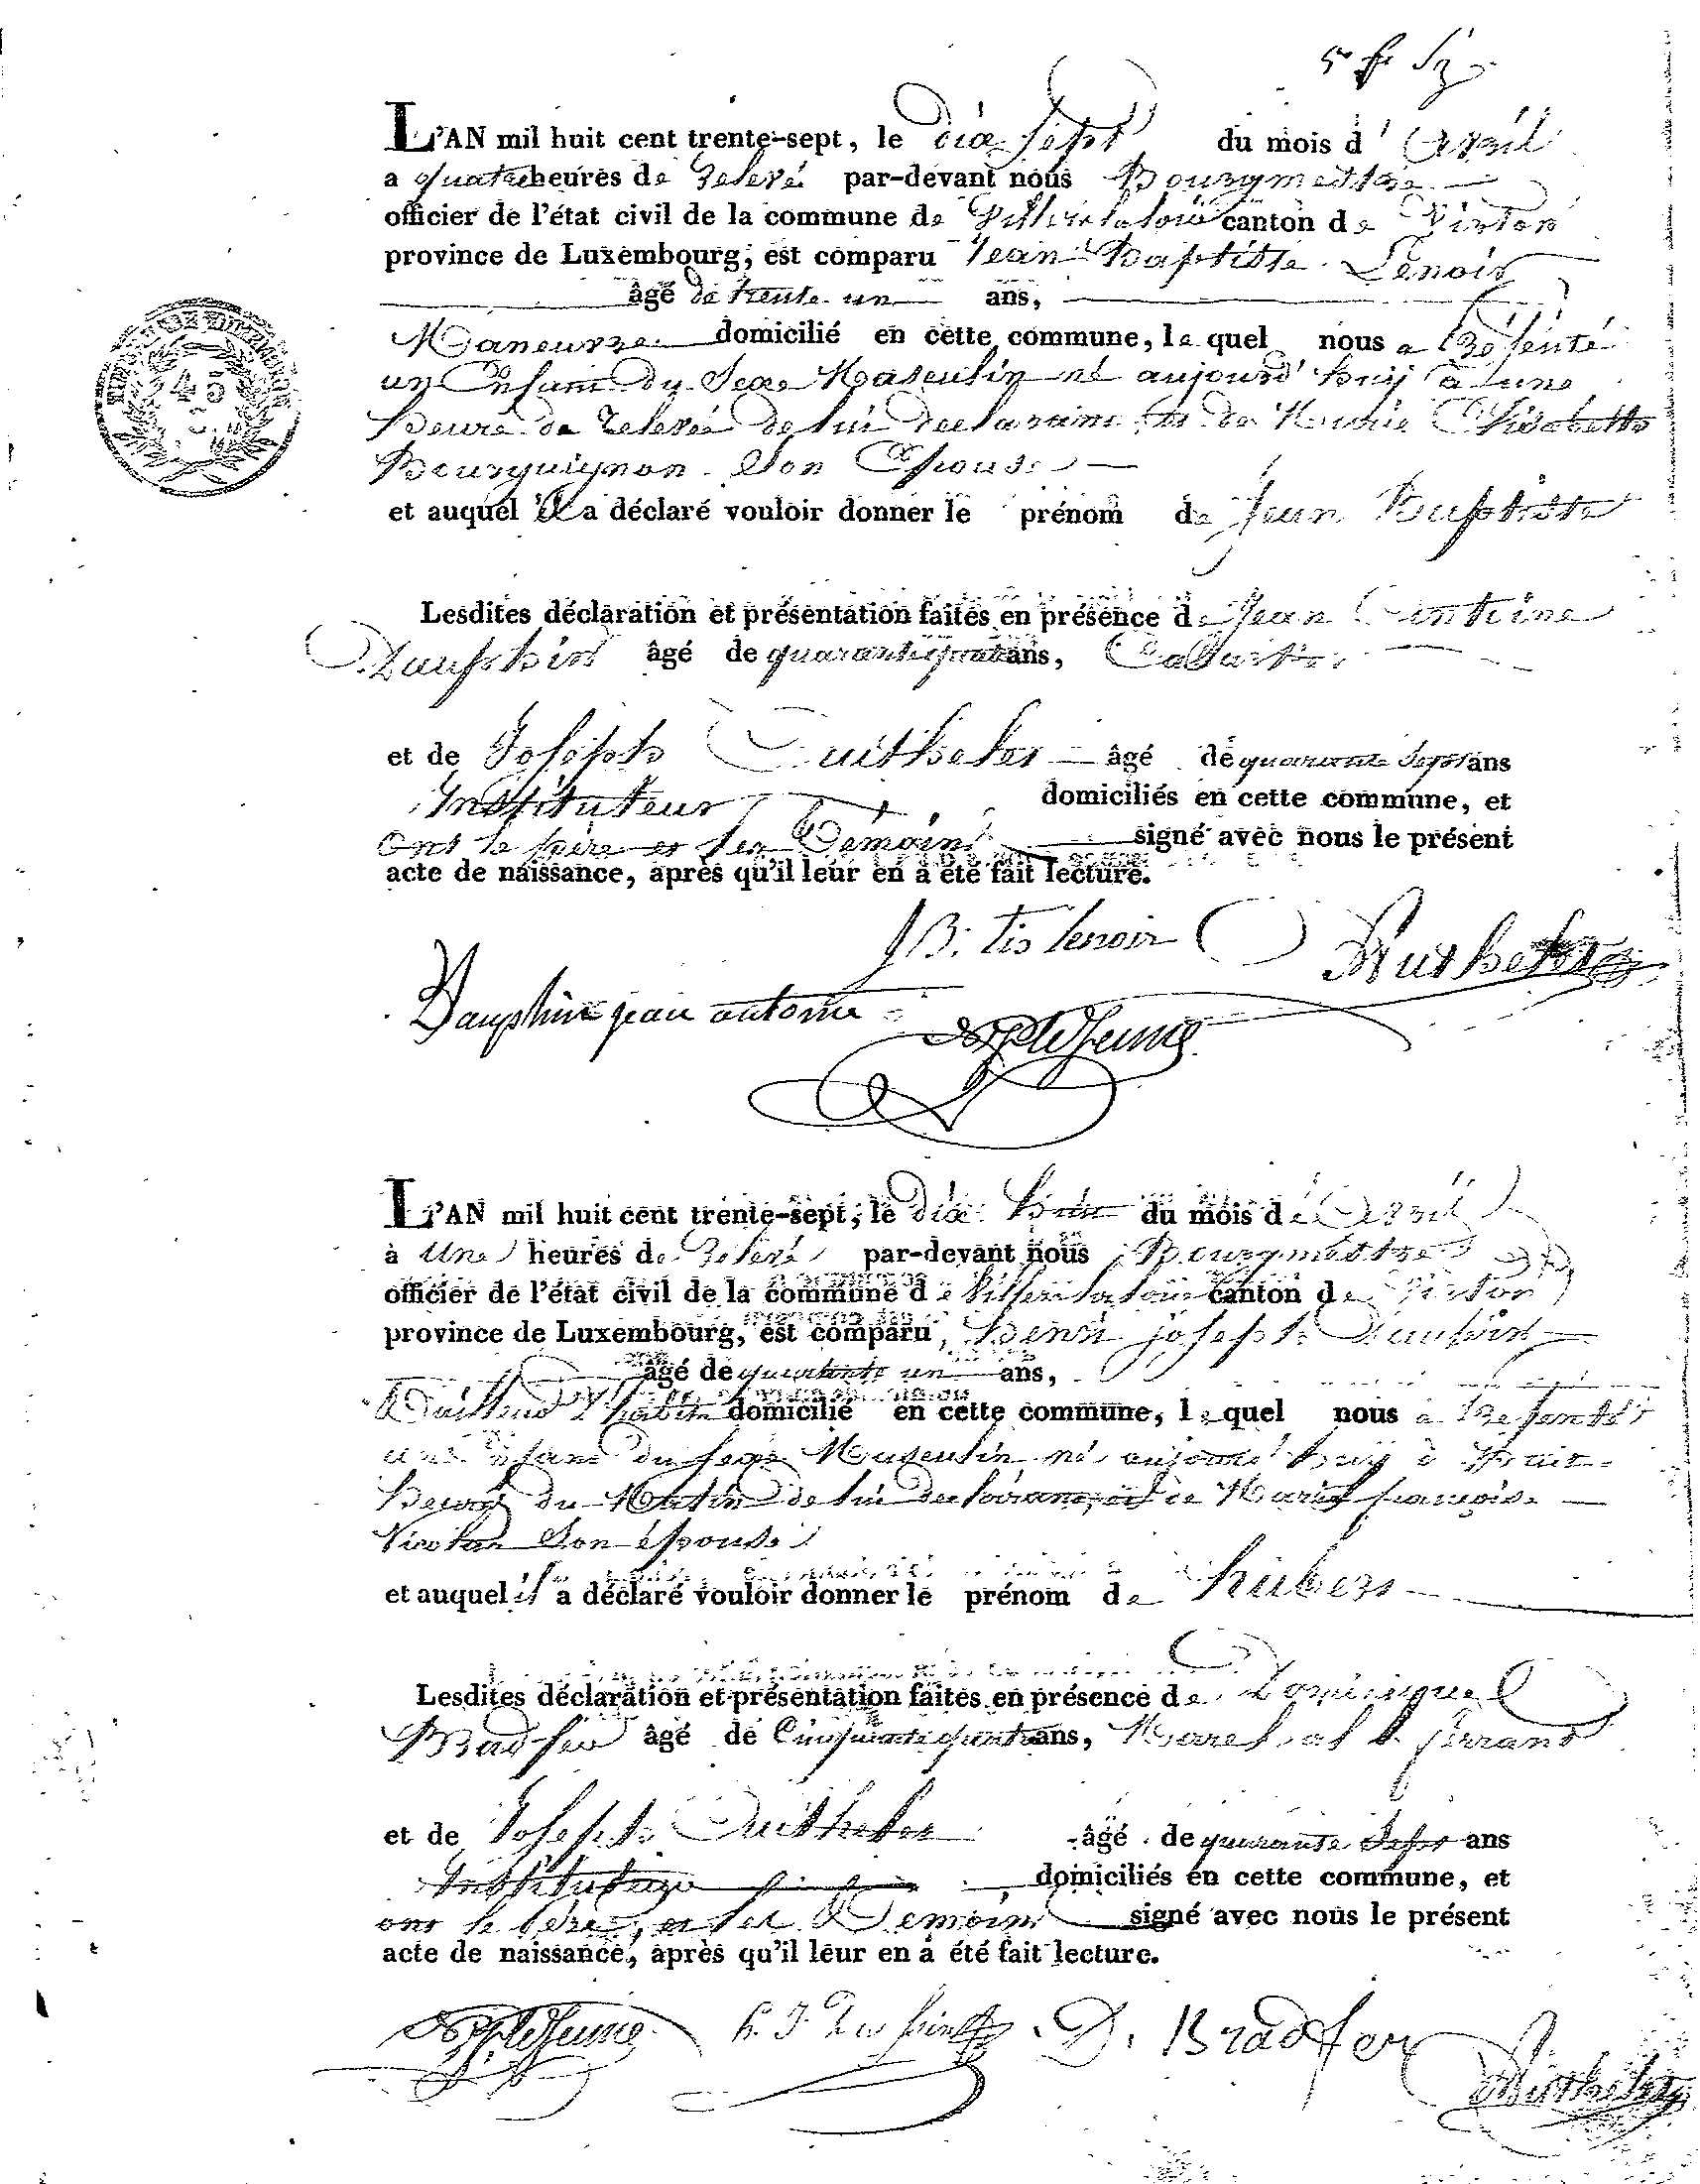 L'AN mil huit cent trente-sept, le dix sept du mois d'Avril
a quatre heures de Relevé par-devant nous Bourgmestre
officier de l'état civil de la commune de Villers la loüe canton de Virton
province de Luxembourg, est comparu Jean Baptiste Lenoir
âgé de trente un ans,
Maneuvre domicilié en cette commune, lequel nous a Présenté
un Enfant du Sexe Masculin né aujourd'huij à une
heure de Relevée de lui declarant et de Marie Elisabette
Bourguignon Son Epouse
et auquel il a déclaré vouloir donner le prénom de Jean Baptiste
Lesdites déclaration et présentation faites en présence de Jean Antoine
Dauphin âgé de quarante quatre ans, Cabartier
et de Joseph Outhelet âgé de quarante Sept ans
Instituteur domiciliés en cette commune, et
ont le père et les Temoins signé avec nous le présent
acte de naissance, après qu'il leur en a été fait lecture.
J B. tis lenoir
Dauphin jean antoine
L'AN mil huit cent trente-sept, le dix huit du mois d'Avril
à Une heures de Relevé par-devant nous Bourgmestre
officier de l'état civil de la commune de Villers la loüe canton de Virton
province de Luxembourg, est comparu henri joseph Dauphin
âgé de quarante un ans,
Tailleur d'habits domicilié en cette commune, lequel nous a Présenté
un Enfant du sexe Masculin né aujourd'huij à huit
heures du Matin de lui declarant, et de Marie françoise
son épouse
et auquel il a déclaré vouloir donner le prénom de hubert
Lesdites déclaration et présentation faites en présence de Dominique
Bradfer âgé de Cinquante quatre ans, Marechal ferrant
et de Joseph Outhelet âgé de quarante Sept ans
Instituteur domiciliés en cette commune, et
ont le père, et les Temoins signé avec nous le présent
acte de naissance, après qu'il leur en a été fait lecture.
h. J. Dauphin D. Bradfer